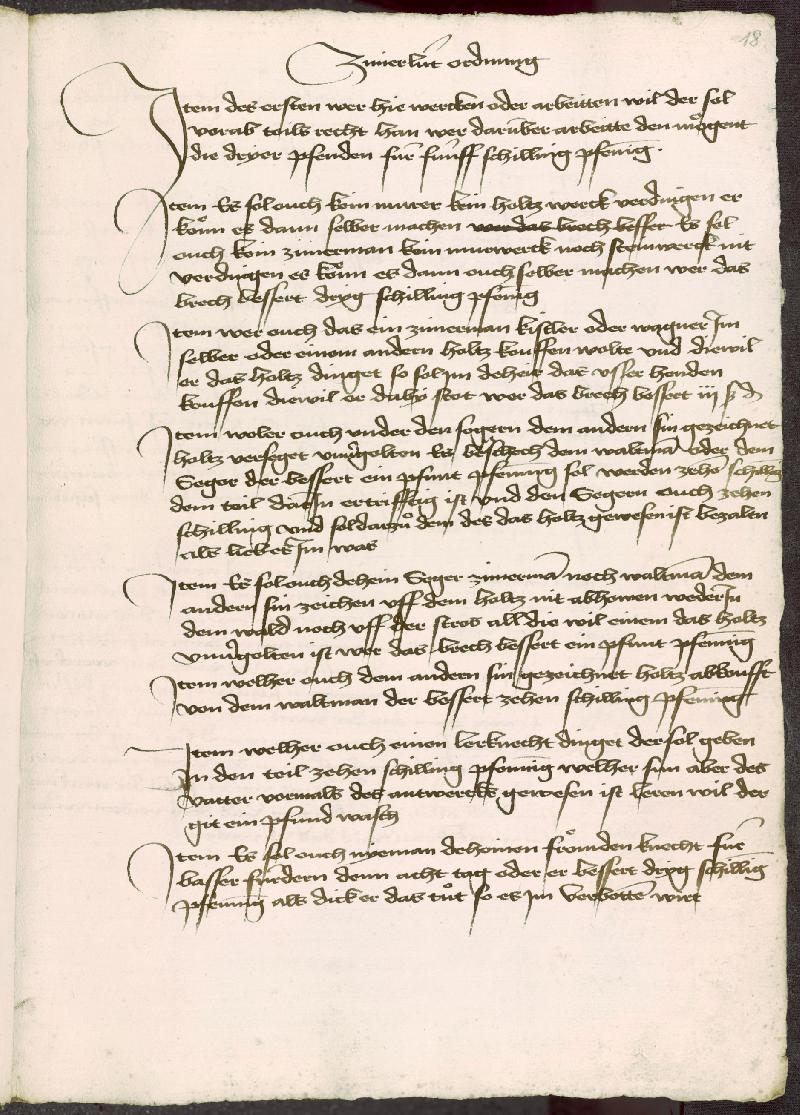 18
Zimerlüt ordnung
Item des ersten wer hie wercken oder arbeitten wil der sol
vorab teils recht han wer darüber arbeitte den mögent
die dryer pfenden für fünff schilling pfenig
Item Es sol ouch kein murer kein holtz werck verdingen er
könn es dann selber machen wer das brech besser Es sol
ouch kein zimerman kein murwerck noch steinwerck nit
verdingen er könn es dann ouch selber machen wer das
brech bessert dryg schilling pfenig
Item wer ouch das ein zimerman kistler oder wagner Im
selber oder einem andern holtz kouffen wolte und diewil
er das holtz dinget so sol im deheir das usser handen
kouffen diewil er daby stot wer das brech bessert iij ß d
Item weler ouch under den segern dem andern sin gezeichnet
holtz verseget unvergolten Es beschech dem waltman oder dem
Seger der bessert ein pfunt pfening sol werden zehe schilling
dem teil dar In er trifftig ist und den Segern ouch zehen
schilling und sol darzü dem des das holtz gewesen ist bezalen
als lieb es Im was
Item Es sol ouch dehein Seger zimerman noch waltman dem
andern sin zeichen uff dem holtz nit abhowen weder In
dem wald noch uff der stros all die wil einem das holtz
unvergolten ist wer das brech bessert ein pfunt pfening
Item welher ouch dem andern sin gezeichnet holtz abkoufft
von dem waltman der bessert zehen schilling pfening
Item welher ouch einen lerknecht dinget der sol geben
In den teil zehen schilling pfenig welher sun aber des
vatter vormals des antwercks gewesen ist leren wil der
git ein pfund wasch
Item Es sol ouch nyeman deheinen frömden knecht für
basser fürdern denn acht tag oder er bessert dryg schilling
pfening als dick er das tüt so es im verbotten wirt